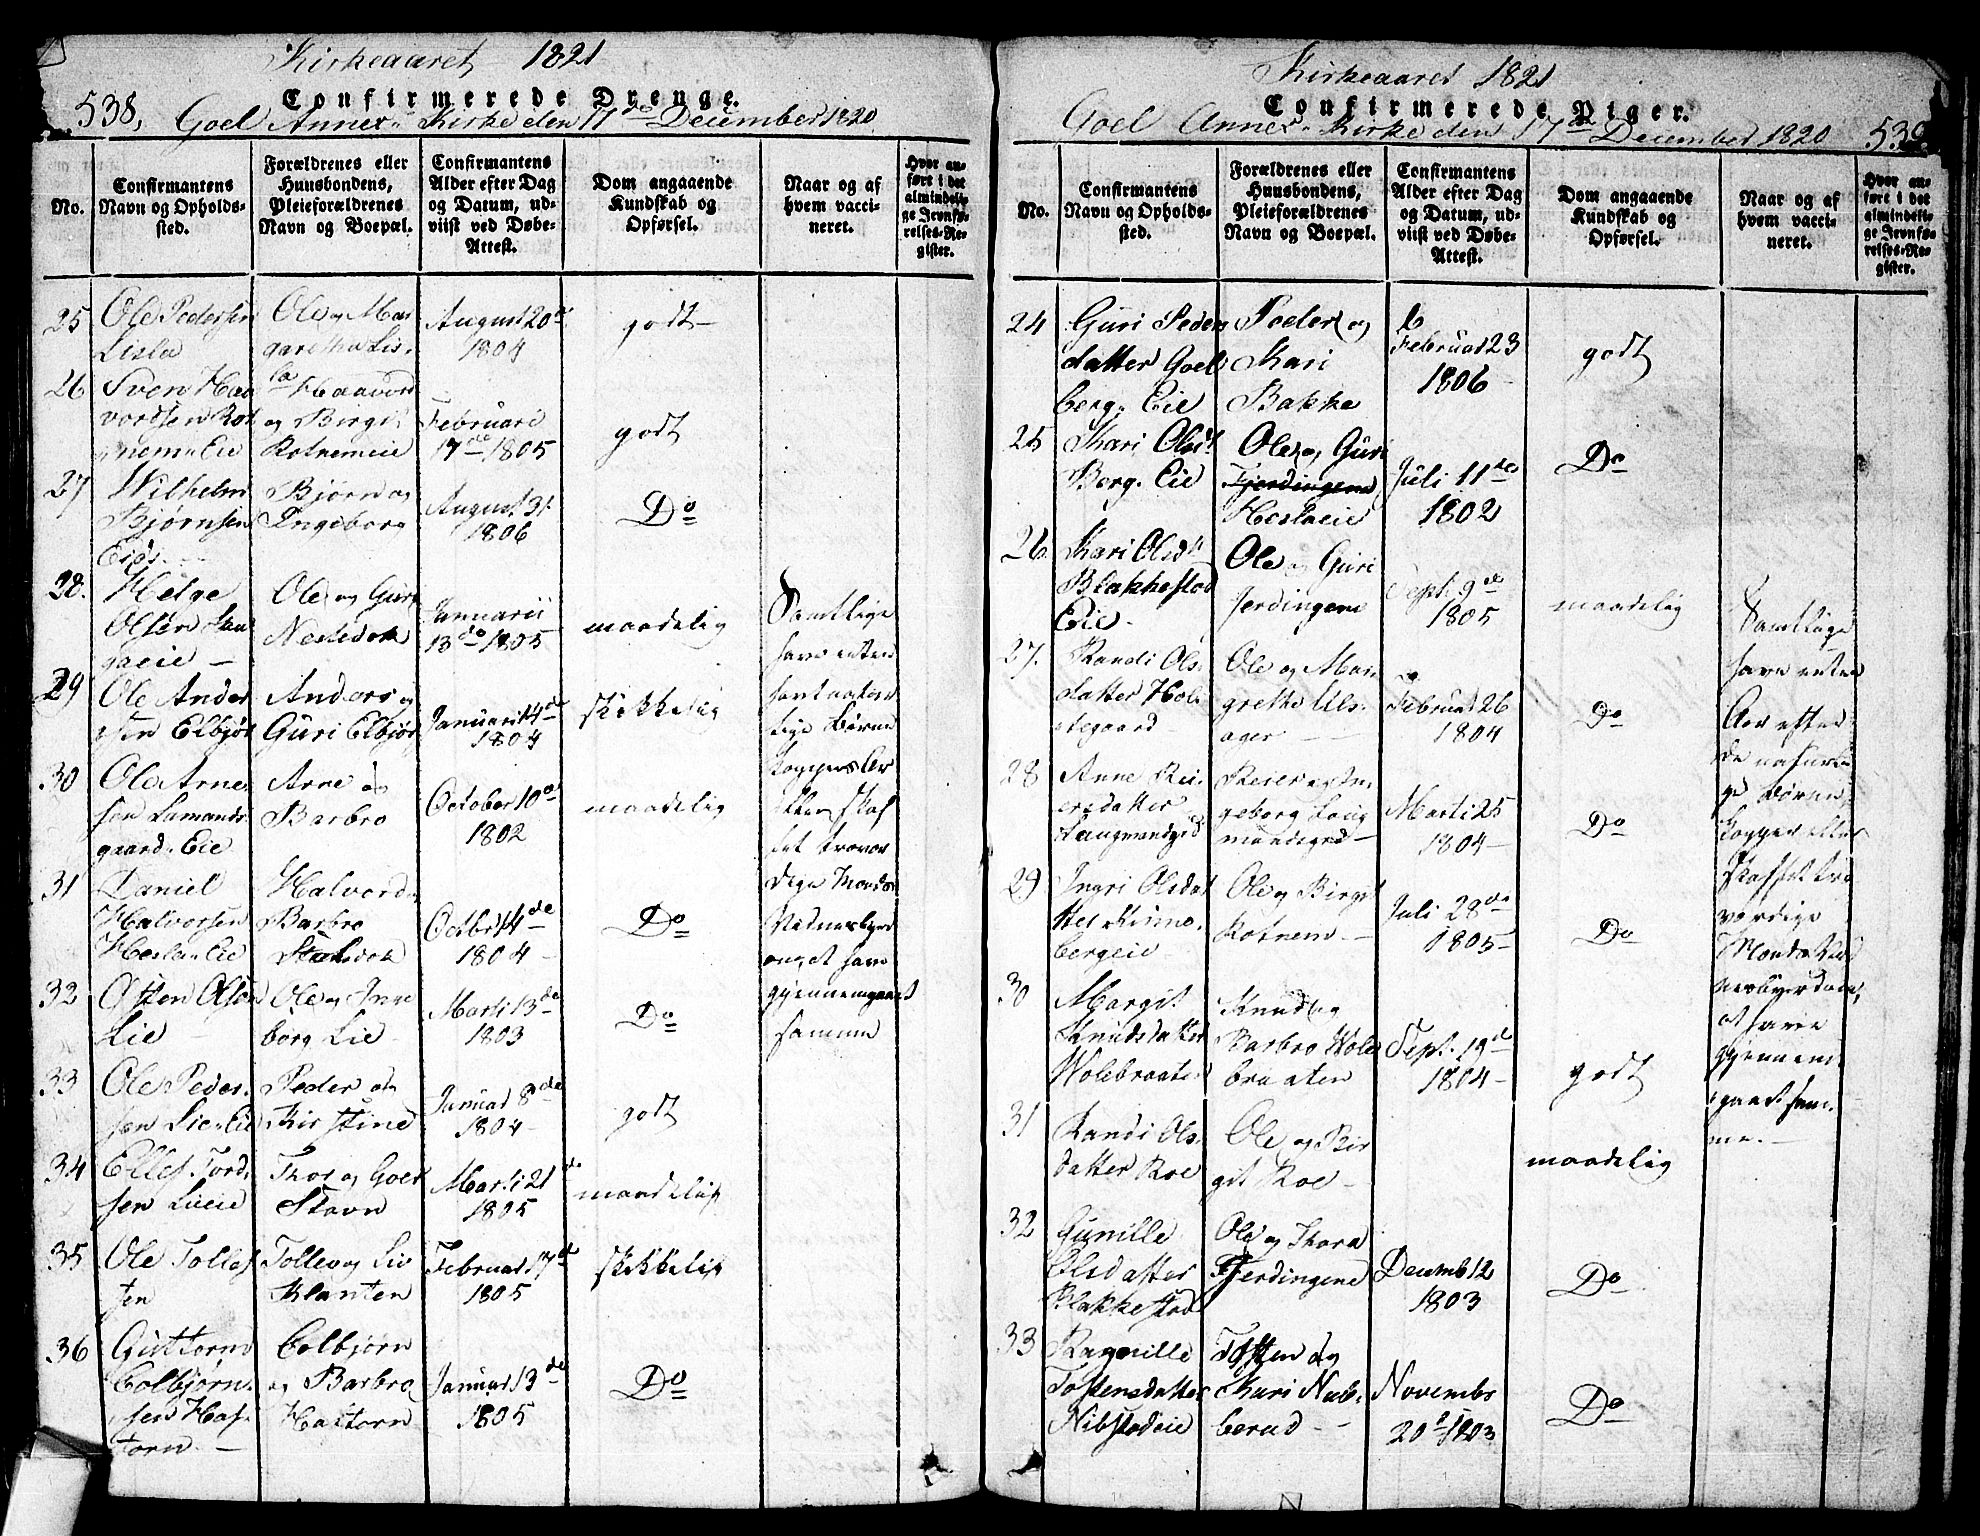 Kirkeaaret 1821
538,
Confirmerede Drenge.
Goel Annex Kirke den 17de December 1820
No.
Confirmantens
Navn og Opholds-
sted.
Forældrenes eller
Huusbondens,
Pleieforældrenes
Navn og Boepæl.
Confirmantens
Alder efter Dag
og Datum, ud-
viist ved Døbe-
Attest.
Dom angaaende
Kundskab og
Opførsel.
Naar og af
hvem vacci-
neret.
Hvor an-
ført i det
almindeli-
ge Jevnfø-
relses-Re-
gister.
25
Ole Pedersen
Lisla
Ole og Mar
garetha Lis-
la
August 20de
1804
godt
26
Sven Haa
vordsen Rot
nem Eie
Haavor
og Birgit
Rotnemeie
Februari
17de 1805
godt
27
Wilhelm
Bjørnsen
Eie
Bjørn og
Ingeborg
August 31
1806
Do
28.
Helge
Olsen
gaeie
Ole og Guri
Januarii
13de 1805
maadelig
29
Ole Ander
sen Elbjør
Anders og
Guri Elbjør
Januari 14de
1804
skikkelig
30
Ole Arne
sen
gaard. Eie
Arne og
Barbro
October 10de
1802
maadelig
31
Daniel
Halvorsen
Hesla Eie
Halvord
Barbro
Octbr 14de
1804
Do
32
Osten Olsen
Lie
Ole og Inge
borg Lie
Marti 13de
1803
Do
33
Ole Peder-
sen Lie Eie
Peder og
Kirstine
Januar 8de
1804
godt
34
Ellef Tord-
sen Lieeie
Thor og Goer
Støvn
Marti 21de
1805
maadelig
35
Ole Tollef
sen
Tollev og Liv
Klanten
Februar 17de
1805
skikkelig
36
Guttorm
Colbjørn-
sen Has-
torn
Colbjørn
og Barbro
Hastorn
Januar 13de
1805
Do
Samtlige
have enten
naturlige Børne
kopper
troevær
dige
at have
gjennemgaaet
samme
Kirkeaaret 1821
Confirmerede Piger.
Goel Annex Kirke den 17de December 1820
539
No.
Confirmantens
Navn og Opholds-
sted.
Forældrenes eller
Huusbondens,
Pleieforældrenes
Navn og Boepæl.
Confirmantens
Alder efter Dag
og Datum, ud-
viist ved Døbe-
Attest.
Dom angaaende
Kundskab og
Opførsel.
Naar og af
hvem vacci-
neret.
Hvor an-
ført i det
almindeli-
ge Jevnfø-
relses-Re-
gister.
24
Guri Peders
datter Goel
berg. Eie
Peder og
Kari
Bakke
Februar 23
1806
godt
25
Kari Olsd
Berg. Eie
Ole og Guri
Fjerdingene
Heslaeie
Juli 11te
1802
Do
26.
Kari Olsd
Blakkestad
Eie
Ole og Guri
Jerdingene
Sept 9de
1805
maadelig
27.
Randi Ols-
datter Hol
stegaard
Ole og Mar
grethe Uls-
ager
Februar 26
1804
Do
28
Anne Rei
ersdatter
Laugmandsgrd
Reier og In
geborg Laug
mandsgrd
Marti 25
1804
Do
29
Ingri Olsdat
ter Kinne-
bergeie
Ole og Birgit
Rotnem
Juli 28de
1805
Do
30
Margit
Knudsdatter
Wolebraaten
Knud og
Barbro Wole
braaten
Sept. 19de
1804
godt
31
Randi Ols-
datter Roe
Ole og Bir
git Roe
maadelig
32
Gunille
Olsdatter
Blakkestad
Ole og Thora
Fjerdingene
Decemb 12
1803
Do
33
Ragnille
Tostensdatter
Nibstadeie
Tosten og
Kari Nub-
berud
Novembr
20de 1803
Do
Samtlige
have enten
de naturli
ge Børne
kopper eller
skaffet tro
værdige
Mænds Vid
nesbyrd om,
at have
gjennem
gaaet sam-
me.